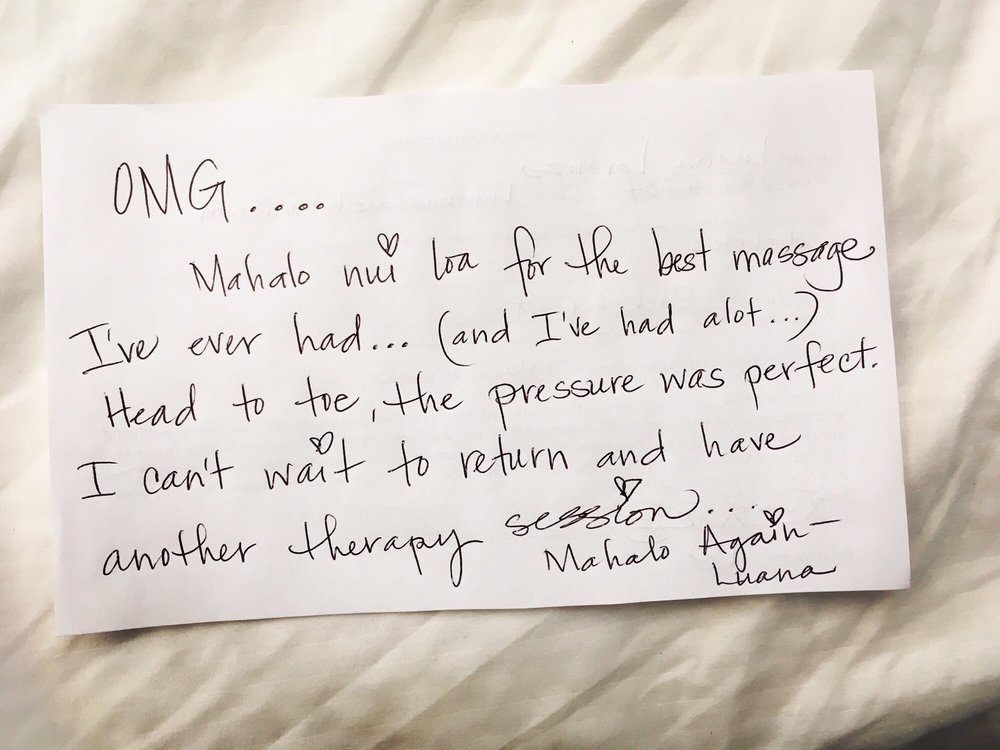 OMG....
Mahalo nui loa for the best massage
I've ever had... (and I've had alot...)
Head to toe, the pressure was perfect.
I can't wait to return and have
another therapy session....
Mahalo Again—
Luana